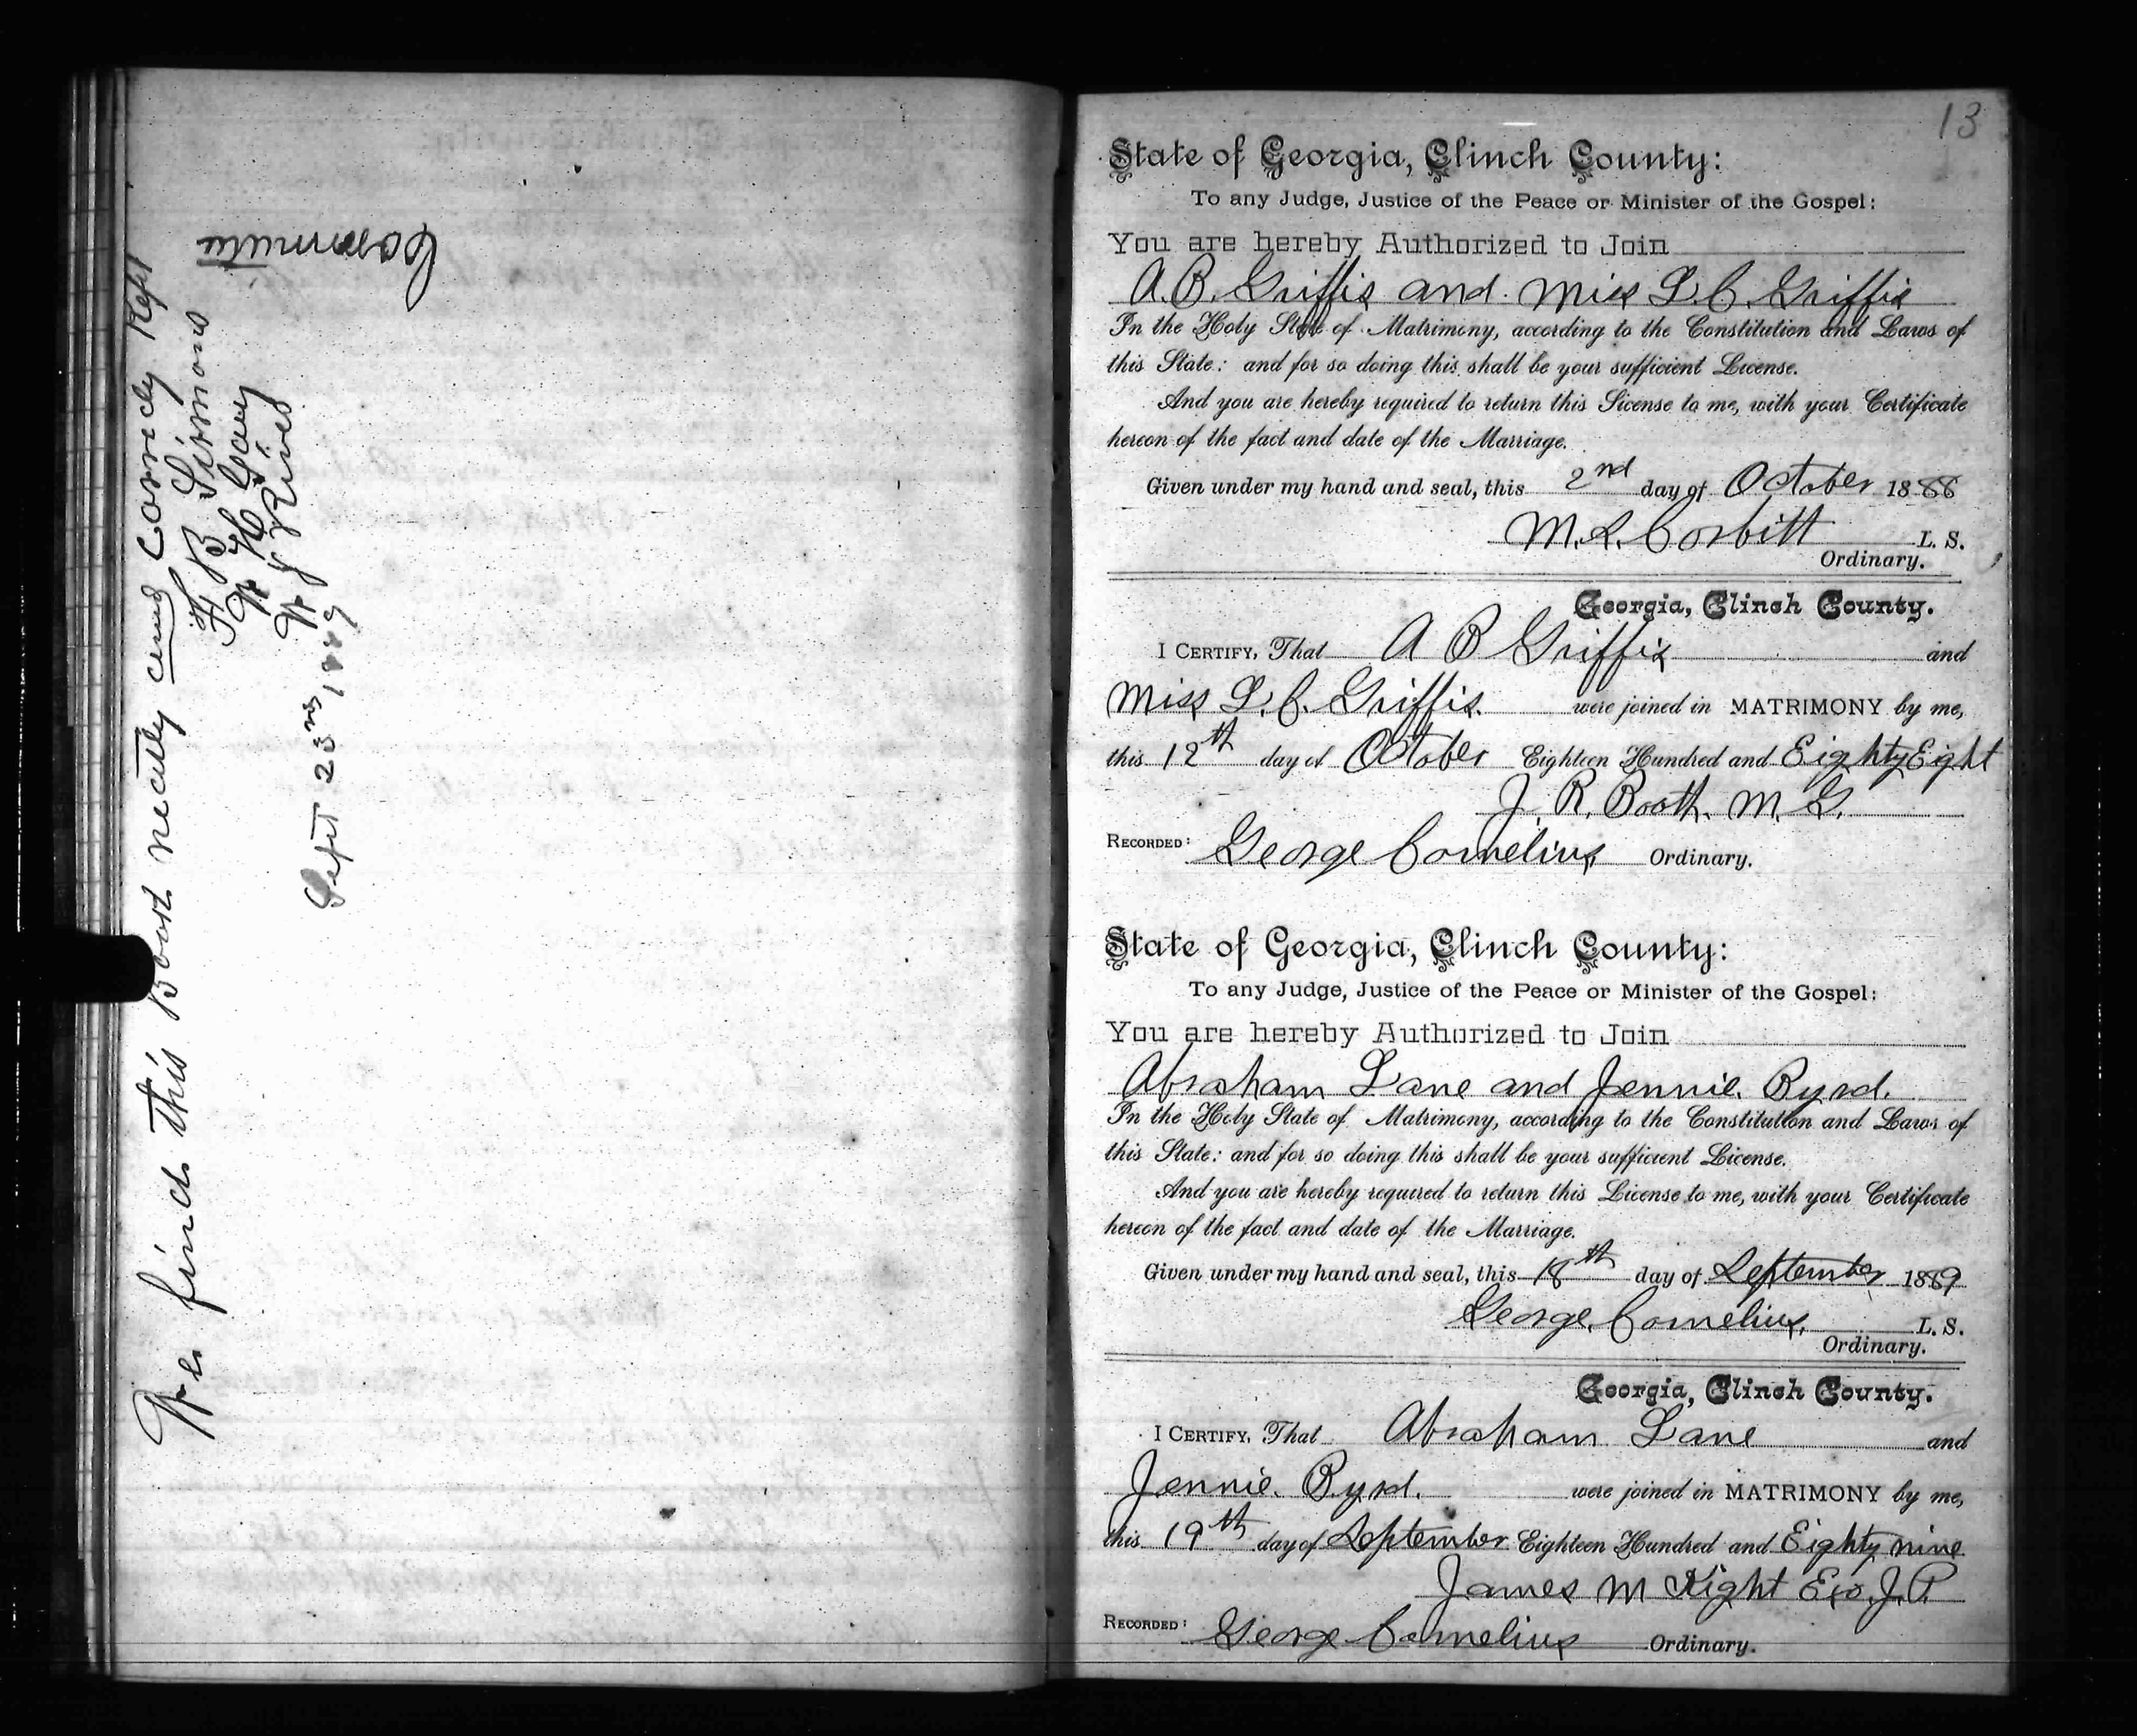 We find this Book neatly and Correctly Kept
F B Sirmons
W H
W J Rives
Committee
Sept 23rd, 1889
13
State of Georgia, Clinch County:
To any Judge, Justice of the Peace or Minister of the Gospel:
You are hereby Authorized to Join
A. B. Griffis and Miss L. C. Griffis
In the Holy State of Matrimony, according to the Constitution and Laws of
this State: and for so doing this shall be your sufficient License.
And you are hereby required to return this License to me, with your Certificate
hereon of the fact and date of the Marriage.
Given under my hand and seal, this 2nd day of October 1888
M. L. Corbitt L. S.
Ordinary.
Georgia, Clinch County.
I CERTIFY, That A B Griffis and
Miss L. C. Griffis. were joined in MATRIMONY by me,
this 12th day of October Eighteen Hundred and Eighty Eight
J. R. Booth. M. G.
RECORDED: George Cornelius Ordinary.
State of Georgia, Clinch County:
To any Judge, Justice of the Peace or Minister of the Gospel:
You are hereby Authorized to Join
Abraham Lane and Jennie Byrd.
In the Holy State of Matrimony, according to the Constitution and Laws of
this State: and for so doing this shall be your sufficient License.
And you are hereby required to return this License to me, with your Certificate
hereon of the fact and date of the Marriage.
Given under my hand and seal, this 18th day of September 1889
George Cornelius, L. S.
Ordinary.
Georgia, Clinch County.
I CERTIFY, That Abraham Lane and
Jennie Byrd. were joined in MATRIMONY by me,
this 19th day of September Eighteen Hundred and Eighty nine
James M Kight Exo. J. P.
RECORDED: George Cornelius Ordinary.